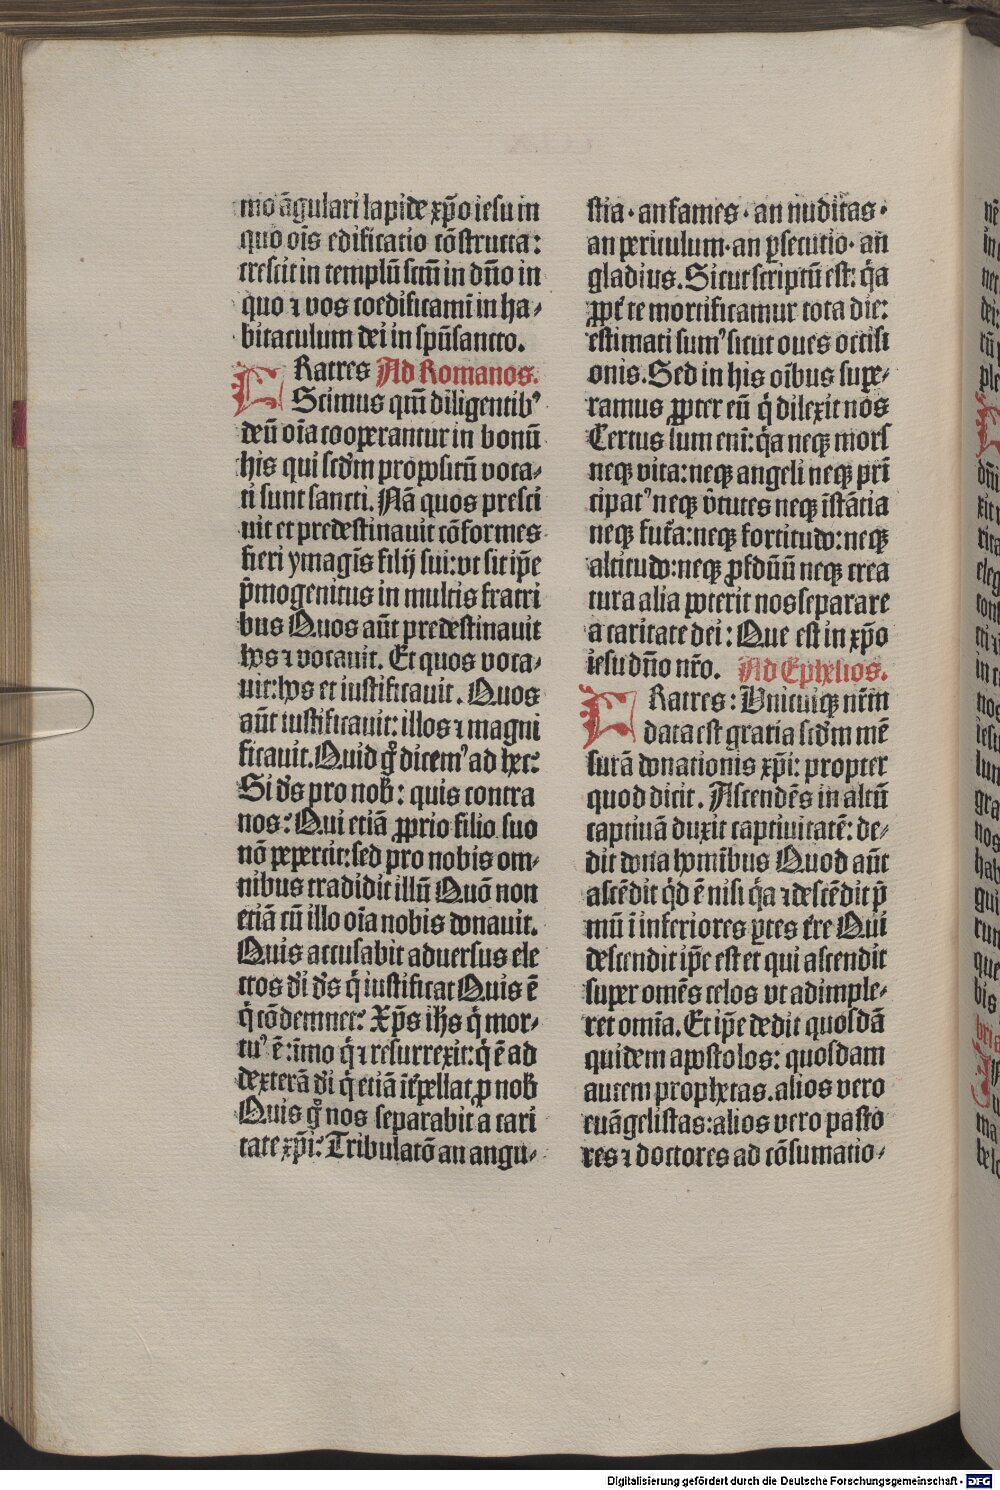 mo āgulari lapide xp̄o iesu in
quo oīs edificatio cōstructa:
crescit in templū scm̄ in dn̄o in
quo ⁊ vos coedificamī in ha-
bitaculum dei in spūsancto.
FRatres Ad Romanos.
Scimus qm̄ diligentibꝰ
deū oīa cooperantur in bonū
his qui scdm̄ propositū voca-
ti sunt sancti. Nā quos presci
uit et predestinauit cōformes
fieri ymagīs filij sui: vt sit ip̄e
p̄mogenitus in multis fratri
bus Quos aūt predestinauit
hos ⁊ vocauit. Et quos voca-
uit: hos et iustificauit. Quos
aūt iustificauit: illos ⁊ magni
ficauit. Quid gͦ dicemꝰ ad hec:
Si ds̄ pro nob̄: quis contra
nos: Qui etiā ꝓprio filio suo
nō pepercit: sed pro nobis om-
nibus tradidit illū Quō non
etiā cū illo oīa nobis donauit.
Quis accusabit aduersus ele
ctos di ds̄ q̇ iustificat Quis ē
q̇ cōdemnet: Xp̄s ihs̄ q̇ mor-
tuꝰ ē: īmo q̇ ⁊ resurrexit: q̇ ē ad
dexterā di q̇ etiā īt̄pellat ꝓ nob̄
Quis gͦ nos separabit a cari
tate xp̄i: Tribulatō an angu-
stia · an fames · an nuditas ·
an periculum · an ꝑsecutio · an
gladius. Sicut scriptū est: q̇a
ꝓpt̄ te mortificamur tota die:
estimati sumꝰ sicut oues occisi
onis. Sed in his oībus supe-
ramus ꝓpter eū q̇ dilexit nos
Certus sum enī: q̇a neqꝫ mors
neqꝫ vita: neqꝫ angeli neqꝫ prī
cipatꝰ neqꝫ v̄tutes neqꝫ īstātia
neqꝫ fut̄a: neqꝫ fortitudo: neqꝫ
altitudo: neqꝫ ꝓfūdū neqꝫ crea
tura alia poterit nos separare
a caritate dei: Que est in xp̄o
iesu dn̄o nr̄o. Ad Ephesios.
FRatres: Vnicuiqꝫ nr̄m
data est gratia scdm̄ mē
surā donationis xp̄i: propter
quod dicit. Ascendēs in altū
captiuā duxit captiuitatē: de-
dit dona homībus Quod aūt
ascēdit q̇d ē nisi q̇a ⁊ descēdit p̄
mū ī inferiores ꝑtes t̄re Qui
descendit ip̄e est et qui ascendit
super omēs celos vt adimple-
ret omīa. Et ip̄e dedit quosdā
quidem apostolos: quosdam
autem prophetas. alios vero
euāgelistas: alios vero pasto
res ⁊ doctores ad cōsumatio-
Digitalisierung gefördert durch die Deutsche Forschungsgemeinschaft - DFG